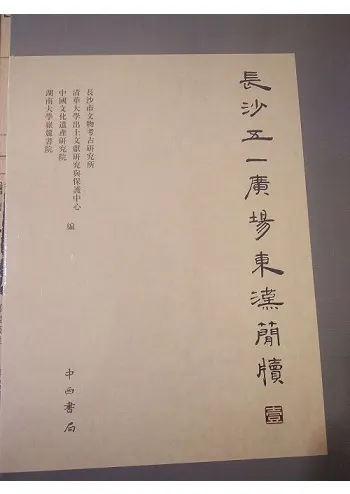 長沙五一廣場東漢簡牘 壹
長沙市文物考古研究所
清華大學出土文獻研究與保護中心
中國文化遺產研究院
湖南大學嶽麓書院
編
中西書局